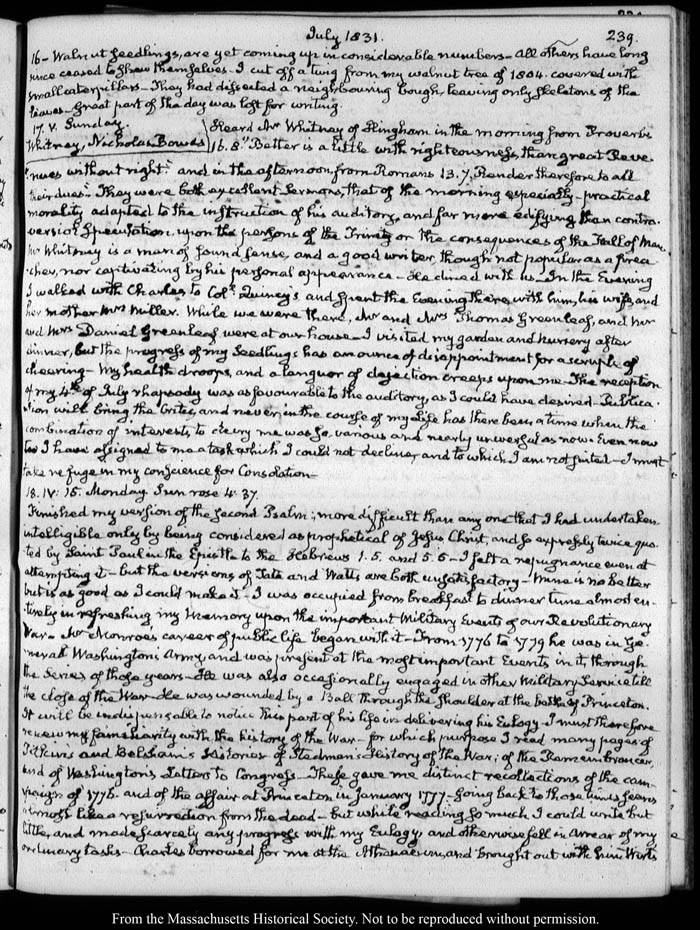 July 1831.
239.
16 – Walnut Seedlings, are yet coming up in considerable numbers – All others have long
since ceased to shew themselves – I cut off a twig from my walnut tree of 1804. covered with
small caterpillars – They had dissected a neighbouring bough, leaving only skeletons of the
leaves – Great part of the day was lost for writing.
17. V. Sunday.
Whitney, Nicholas Bowes
Heard Mr Whitney of Hingham in the morning from Proverbs
16. 8. "Better is a little with righteousness, than great Reve-
"nues without right." and in the afternoon, from Romans 13. 7. Render therefore to all
their dues." They were both excellent Sermons, that of the morning especially – practical
morality adapted to the instruction of his auditory, and far more edifying than contro-
versial Speculation, upon the persons of the Trinity or the consequences of the Fall of Man.
Mr Whitney is a man of sound sense, and a good writer, though not popular as a prea-
cher, nor captivating by his personal appearance – He dined with us – In the Evening
I walked with Charles to Coll. Quincy's and spent the Evening there, with him, his wife, and
her mother Mrs Miller. While we were there, Mr and Mrs Thomas Greenleaf, and Mr
and Mrs Daniel Greenleaf, were at our house – I visited my garden and Nursery after
dinner, but the progress of my Seedlings has an ounce of disappointment for a scruple of
cheering – My health droops, and a languor of dejection creeps upon me – The reception
of my 4th of July rhapsody was as favourable to the auditory, as I could have desired – Publica-
tion will bring the Critic, and never, in the course of my life has there been a time when the
combination of interests, to decry me was so various and nearly universal as now. Even now
too I have assigned to me a task which I could not decline, and to which I am not suited – I must
take refuge in my conscience for Consolation –
18. IV: 15. Monday. Sun rose 4. 37.
Finished my version of the second Psalm; more difficult than any one that I had undertaken
intelligible only by being considered as prophetical of Jesus Christ, and so expressly twice quo-
ted by Saint Paul in the Epistle to the Hebrews 1. 5. and 5. 5 – I felt a repugnance even at
attempting it – but the versions of Tate and Watts are both unsatisfactory – Mine is no better
but is as good as I could make it – I was occupied from breakfast to dinner time almost en-
tirely in refreshing my Memory upon the important Military Events of our Revolutionary
War – Mr Monroe's career of public life began with it – From 1776 to 1779 he was in Ge-
neral Washington's Army, and was present at the most important Events in it, through
the Series of those years – He was also occasionally engaged in other Military Service till
the close of the War – He was wounded by a Ball through the Shoulder at the battle of Princeton.
It will be indispensable to notice this part of his life in delivering his Eulogy – I must therefore
renew my familiarity with the history of the War – for which purpose I read many pages of
Pitkin's and Belsham's Histories of Stedman's History of the War; of the Remembrancer,
and of Washington's Letters to Congress – These gave me distinct recollections of the cam-
paign of 1776. and of the affair at Princeton in January 1777 – Going back to those times seems
almost like a resurrection from the dead – but while reading so much I could write but
little, and made scarcely any progress with my Eulogy and otherwise fell in arrear of my
ordinary tasks – Charles borrowed for me at the Athenaeum, and brought out with him Wirt's
From the Massachusetts Historical Society. Not to be reproduced without permission.